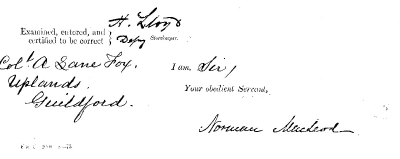 H. Lloyd
Examined, entered, and
certified to be correct } Depy Storekeeper.
Col. A Lane Fox.
I am, Sir,
Uplands.
Your obedient Servant,
Guildford.
Norman MacLeod